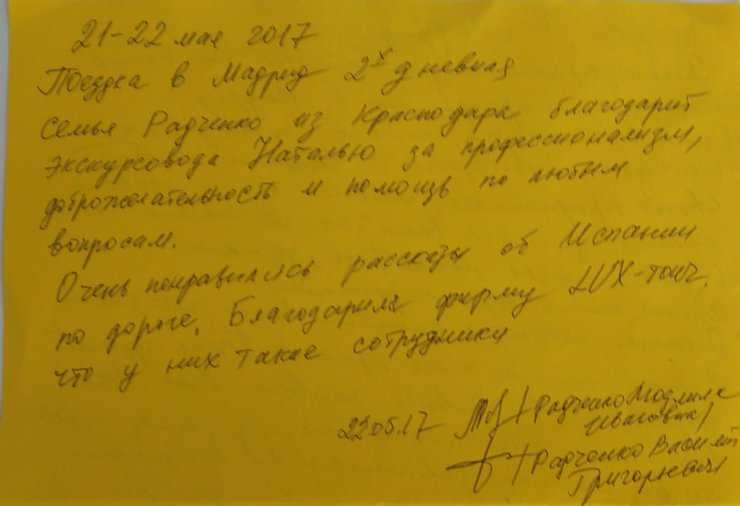 21-22 мая 2017
Поездка в Мадрид 2х дневная
Семья Радченко из Краснодара благодарит
экскурсовода Наталью за профессионализм,
доброжелательность и помощь по любым
вопросам.
Очень понравились рассказы об Испании
по дороге. Благодарим фирму LUX-
что у них такие сотрудники
22.05.17 Радченко
Ивановна
Радченко Василий
Григорьевич